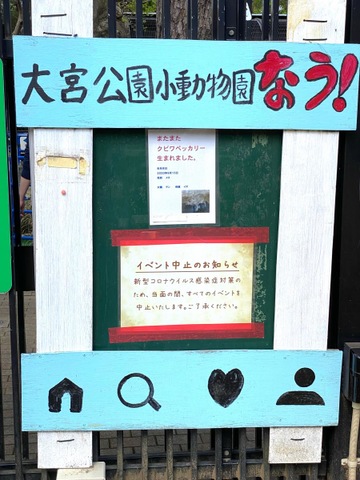 大宮公園小動物園なう!
またまた
クビワペッカリー
生まれました。
イベント中止のお知らせ
新型コロナウイルス感染症対策の
ため、当面の間、すべてのイベントを
中止いたします。ご了承ください。